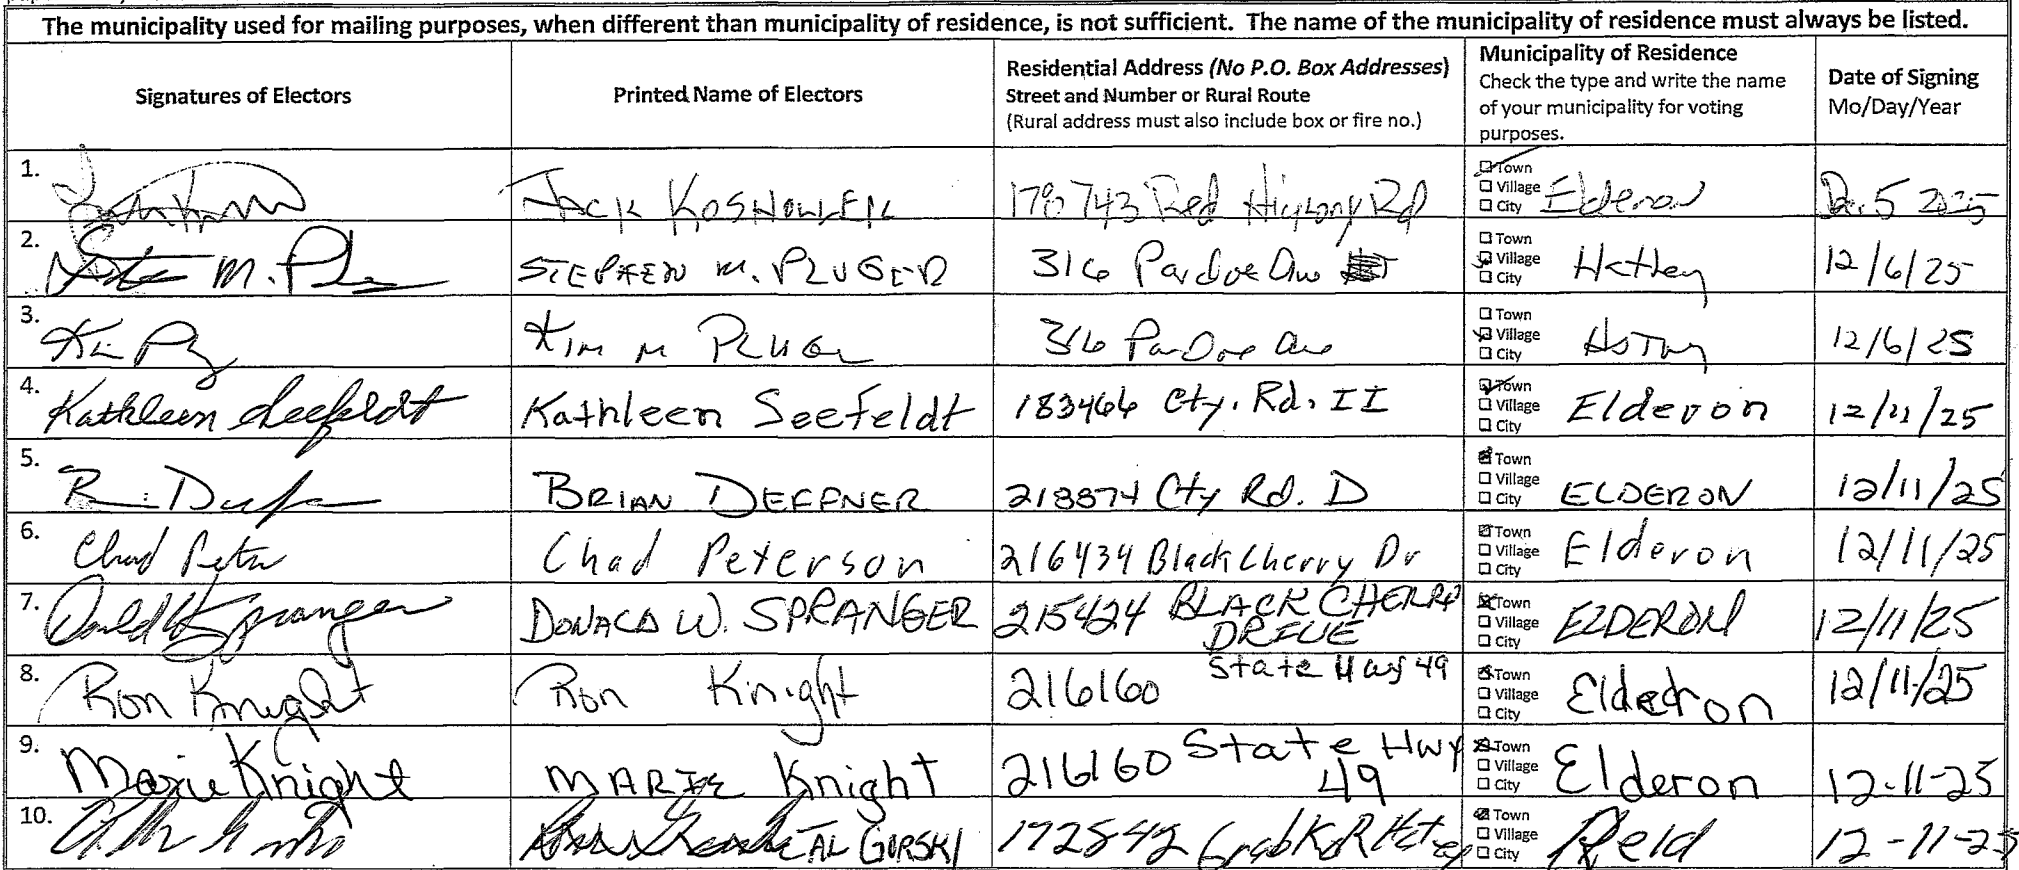 The municipality used for mailing purposes, when different than municipality of residence, is not sufficient. The name of the municipality of residence must always be listed.
Signatures of Electors
Printed Name of Electors
Residential Address (No P.O. Box Addresses)
Street and Number or Rural Route
(Rural address must also include box or fire no.)
Municipality of Residence
Check the type and write the name
of your municipality for voting
purposes.
Date of Signing
Mo/Day/Year
1.
JACK
178743 Red Rd
Town
Village
City
Elderon
2.
M.
STEPHEN M. PLUGER
316 Pardoe Ave
Town
Village
City
Hatley
12/6/25
3.
KIM M
316 Pardoe Ave
Town
Village
City
12/6/25
4.
Kathleen Seefeldt
Kathleen Seefeldt
183466 Cty. Rd. II
Town
Village
City
Elderon
12/11/25
5.
BRIAN DEFFNER
218874 Cty Rd. D
Town
Village
City
ELDERON
12/11/25
6.
Chad
Chad Peterson
216434 Black Cherry Dr
Town
Village
City
Elderon
12/11/25
7.
Donald W Spranger
DONALD W. SPRANGER
215424 BLACK CHERRY
DRIVE
Town
Village
City
ELDERON
12/11/25
8.
Ron Knight
Ron Knight
216160 State Hwy 49
Town
Village
City
Elderon
12/11/25
9.
Marie Knight
MARIE Knight
216160 State Hwy
49
Town
Village
City
Elderon
12-11-25
10.
AL GORSKI
172842
Town
Village
City
Reid
12-11-25